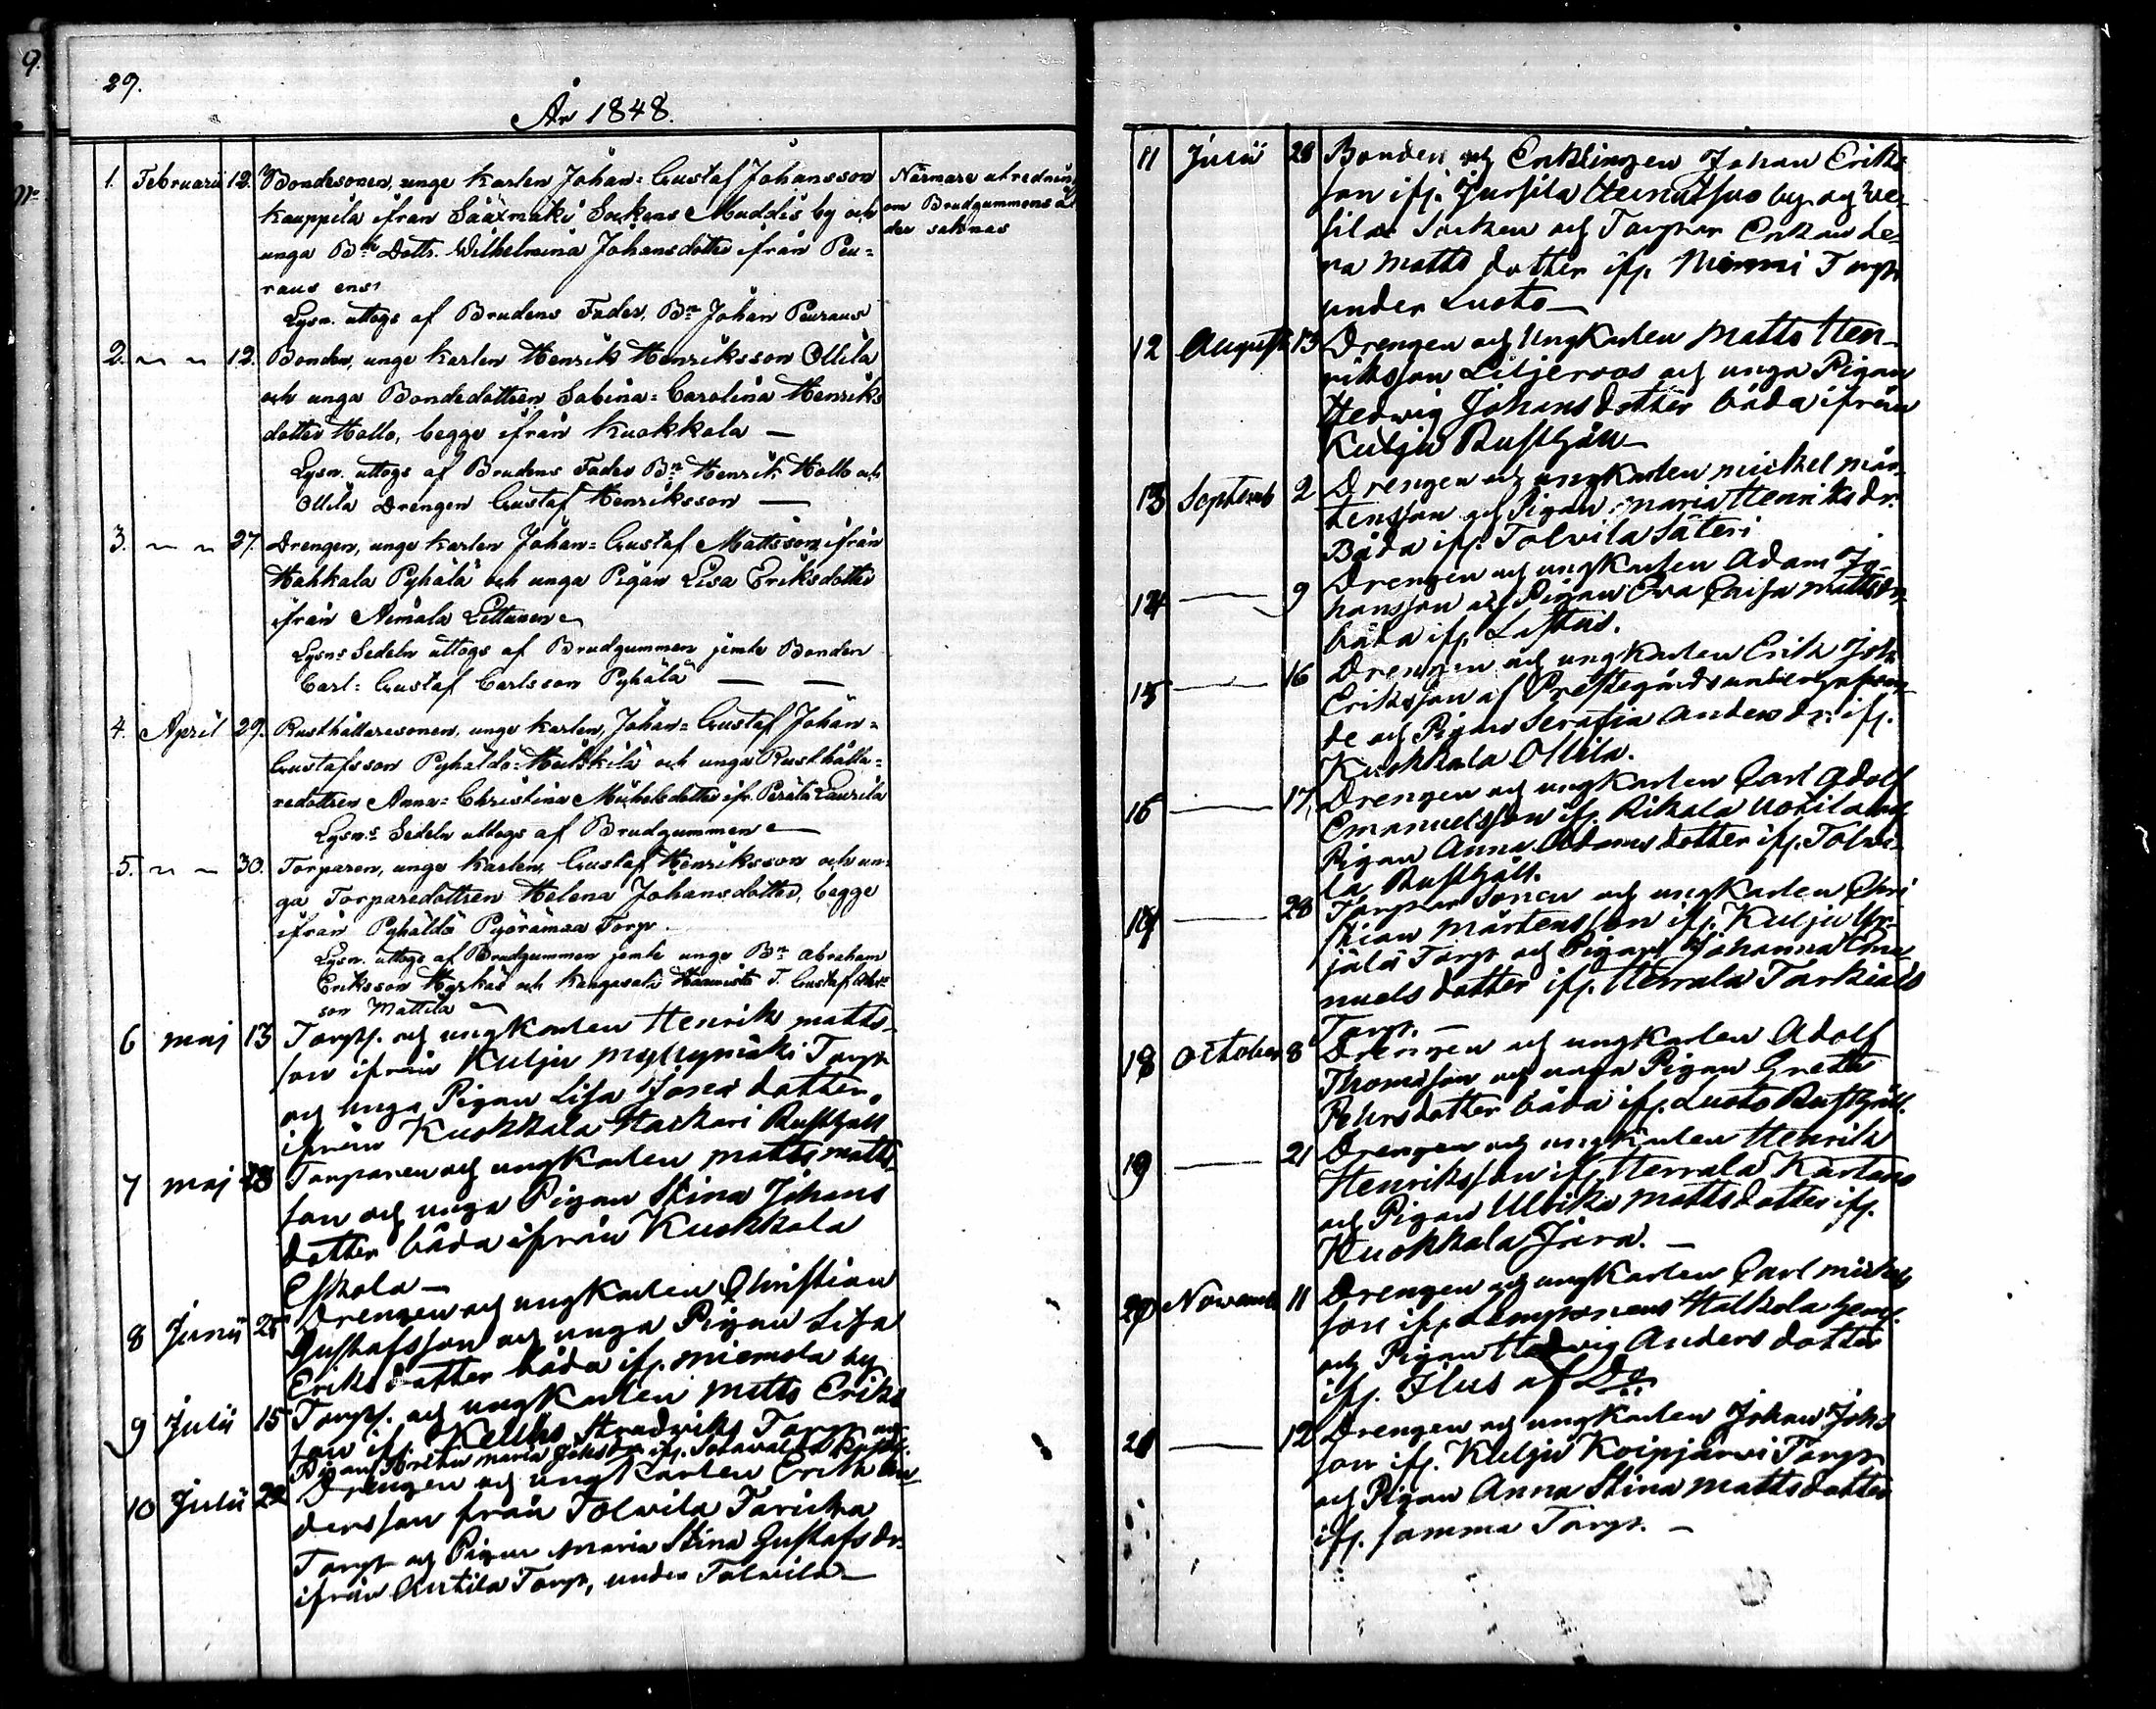 9.
29.
År 1848.
N:o
1. Februarii 12. Bondesonen, unge karlen Johan=Gustaf Johansson
Kauppila ifrån Sääxmäki Sockens Muddis by och
unga Bn Dottr. Wilhelmina Johansdotter ifrån Peu=
raus ens
Lysn. uttogs af Brudens Fader, Bn Johan Peuraus
Närmare utredning
om Brudgummens ål
der saknas
2. 12. Bonden, unge karlen Henrik Henriksson Ollila
och unga Bondedottren Sabina=Carolina Henriks
dotter Hollo, begge ifrån Kuokkala —
Lysn. uttogs af Brudens Fader Bn Henrik Hollo och
Ollila Drengen Gustaf Henriksson —
3. 27. Drengen, unge karlen Johan=Gustaf Mattsson ifrån
Hahkala Pyhälä och unga Pigan Lisa Eriksdotter
ifrån Nemala Littanen
Lysns Sedeln uttogs af Brudgummen jemte Bonden
Carl=Gustaf Carlsson Pyhälä — —
4. April 29. Rusthållaresonen, unge karlen, Johan=Gustaf Johan=
Gustafsson Pyhäldö=Hulskilä och unga Rusthålla=
redottren Anna=Christina Michelsdotter ifr. Perälä Laurila
Lysn:s Sedeln uttogs af Brudgummen —
5. 30. Torparen, unge karlen, Gustaf Henriksson och un=
ga Torparedottren Helena Johansdotter, begge
ifrån Pyhäldö Pyörämaa Torp
Lysn. uttogs af Brudgummen jemte unge Bn Abraham
Eriksson Hyrkäs och Kangasala T. Gustaf
son Mattila
6 maj 13 Torps. och ungKarlen Henrik matts-
son ifrån Kulju myllymäki Torp
och unga Pigan Lisa Josea dotter,
ifrån Kuokkala Hackari Rusthåll
7 maj 28 Torparen och ungKarlen matts matts
son och unga Pigan Stina Johans
dotter båda ifrån Kuokkala
Eskola —
8 Junii 25 Drengen och ungKarlen Christian
Gustafsson och unga Pigan Lisa
Eriks dotter båda ifr. miemola by
9 Julii 15 Torps. och ungKarlen matts Eriks
son ifr. Kelho Torp och
Pigan maria Johs dr ifr.
10 Julii 22 Drengen och ungKarlen Erik An
dersson från Tolvila Taricka
Torp och Pigan Maria Stina Gustafs dr.
ifrån Antila Torp, under Tolvila —
11 Julii 28 Bonden och Enklingen Johan Eriks
son ifr. Jussila Heinutsuo by och We-
silax Socken och Torpar Enkan Le-
na Matts dotter ifr. Niemi Torp
under Luoto —
12 Augusti 13 Drengen och UngKarlen Matts Hen-
riksson Liljeroos och unga Pigan
Hedwig Johans dotter båda ifrån
Kulju Rusthåll —
13 Septemb 2 Drengen och ungKarlen mickel mår-
tensson och Pigan maria Henriks dr.
Båda ifr. Tolvila Säteri
14 — 9 Drengen och ungKarlen Adam Jo-
hansson och Pigan Eva Caisa matts dr
båda ifr. Lastus.
15 — 16 Drengen och ungKarlen Erik Joh
Eriksson af Prestegårds
de och Pigan Serafia Anders dr: ifr.
Kuokkala Ollila.
16 — 17 Drengen och ungKarlen Carl Adolf
Emanuelsson ifr. Rikala Uotila och
Pigan Anna Adams dotter ifr. Tolvi-
la Rusthåll.
17 — 28 Torpar Sonen och ungKarlen Chri
stian Mårtensson ifr. Kulju Yr-
jälä Torp och Pigan Johanna Ema
nuels dotter ifr. Herrala Tarkiais
Torp. —
18 October 8 Drengen och ungKarlen Adolf
Thomasson och unga Pigan Greta
Pehrs dotter båda ifr. Luoto Rusthåll.
19 — 21 Drengen och ungKarlen Henrik
Henriksson ifr. Herrala Kartano
och Pigan Ulrika Matts dotter ifr.
Kuokkala Jära. —
20 Novemb 11 Drengen och ungKarlen Carl Mickels
son ifr. Lempoinens Halkola hem.
och Pigan Hedwig Anders dotter
ifr. Ilus af Do
21 — 12 Drengen och ungKarlen Johan Johs
son ifr. Kulju Koipjärvi Torp
och Pigan Anna Stina matts dotter
ifr. samma Torp. —